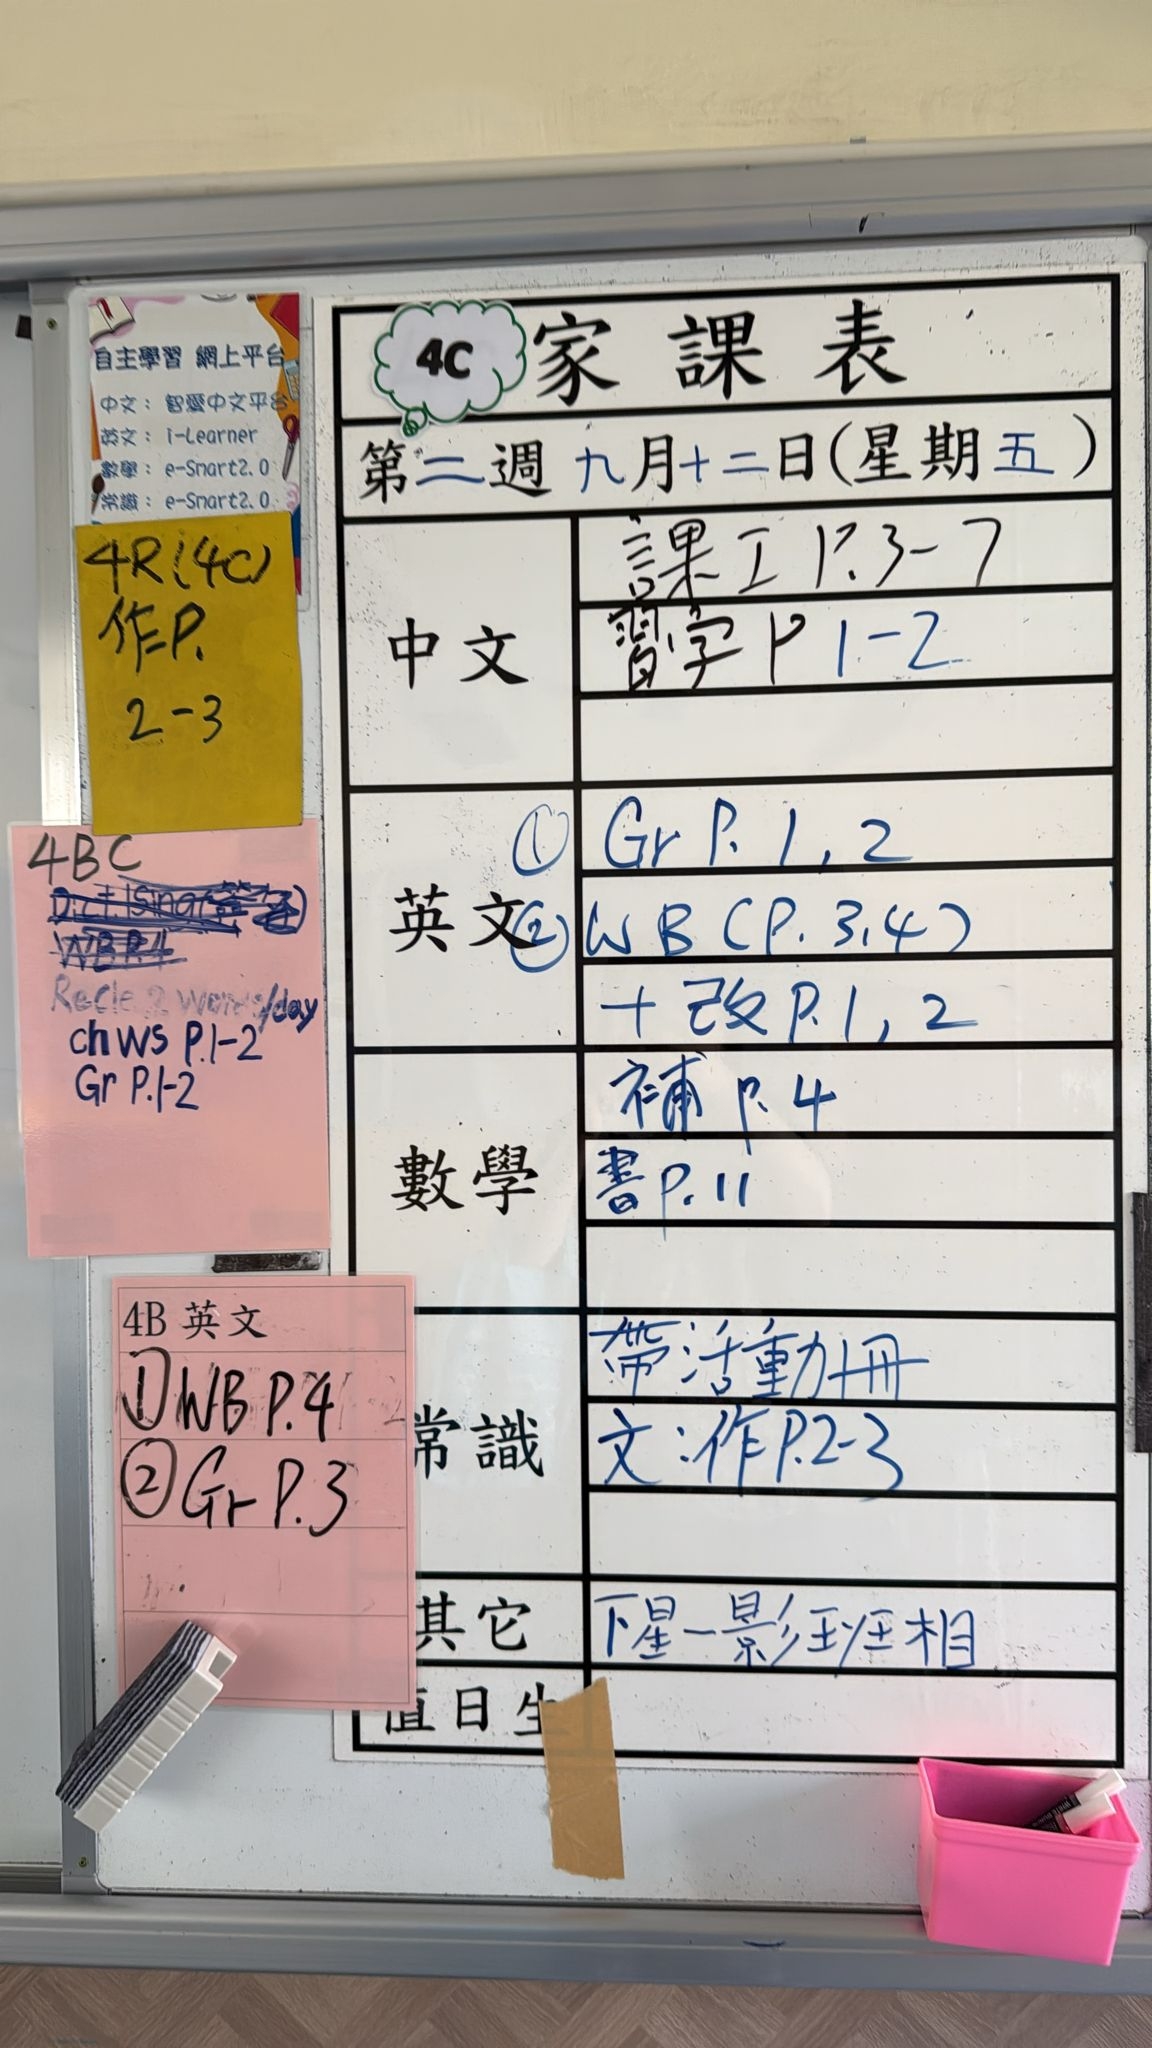 自主學習 網上平台
中文： 智愛中文平台
英文： i-Learner
數學： e-Smart2.0
常識： e-Smart2.0
4R(4C)
作P.
2-3
4BC
Dict.1 Sing(簽名)
WB P.4
Recite 2 words/day
ch WS P.1-2
Gr P.1-2
4B 英文
①WB P.4
②Gr P.3
4C 家課表
第二週 九月十二日(星期五)
中文
課工 P.3-7
習字 P 1-2
英文
① Gr P. 1, 2
② WB (P. 3,4)
+ 改 P. 1, 2
數學
補 P. 4
書 P. 11
常識
帶活動冊
文:作P.2-3
其它
下星一影班相
值日生